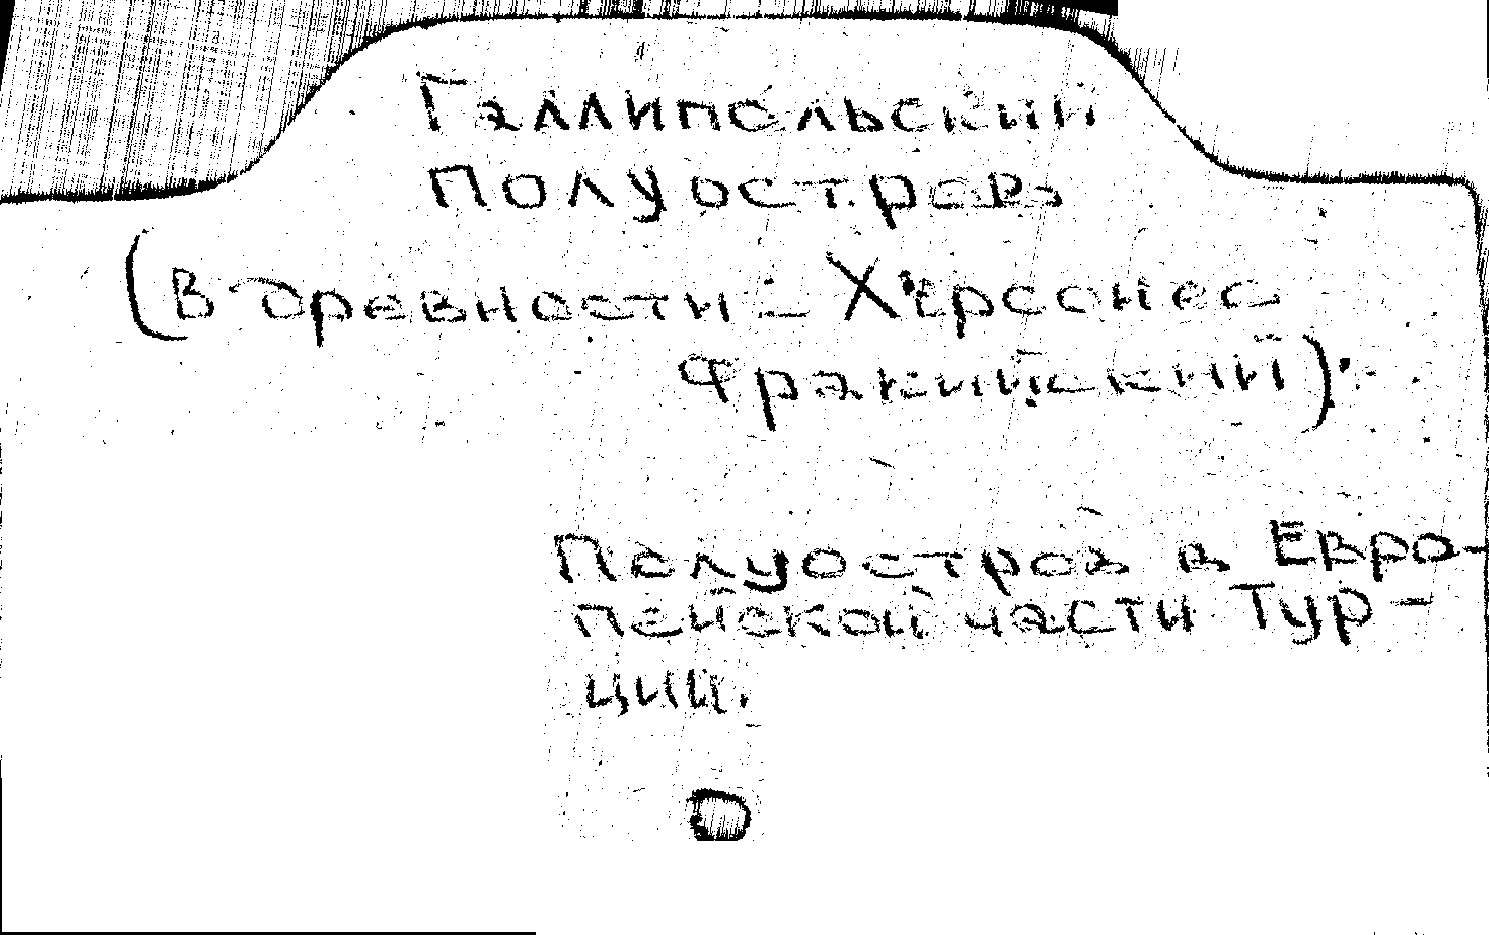 Галлипольский
полуостров
(в древности - Херсонес
Фракийский).
Полуостров в Евро-
пейской части Тур-
ции.